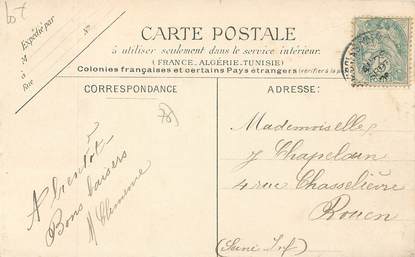 lot
Expédié par
M
Rue
N°
CARTE POSTALE
à utiliser seulement dans le service intérieur.
(FRANCE, ALGÉRIE, TUNISIE)
Colonies françaises et certains Pays étrangers
CORRESPONDANCE
78
A bientôt
Bons baisers
ADRESSE:
Mademoiselle
J Chapelain
4 rue Chasselièvre
Rouen
(Seine Inf)